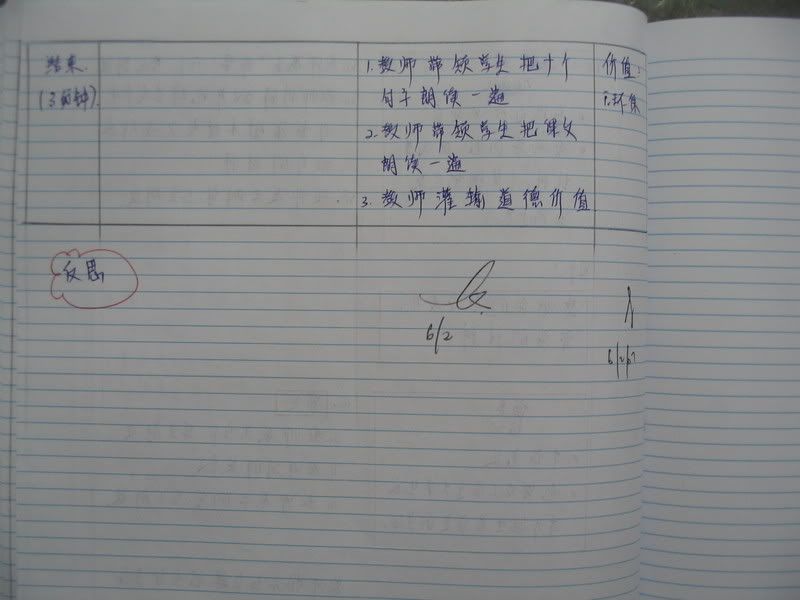 结束.
(3分钟).
1. 教师带领学生把十个
句子朗读一遍
2. 教师带领学生把课文
朗读一遍
3. 教师灌输道德价值
价值:
1.环保
反思
6/2